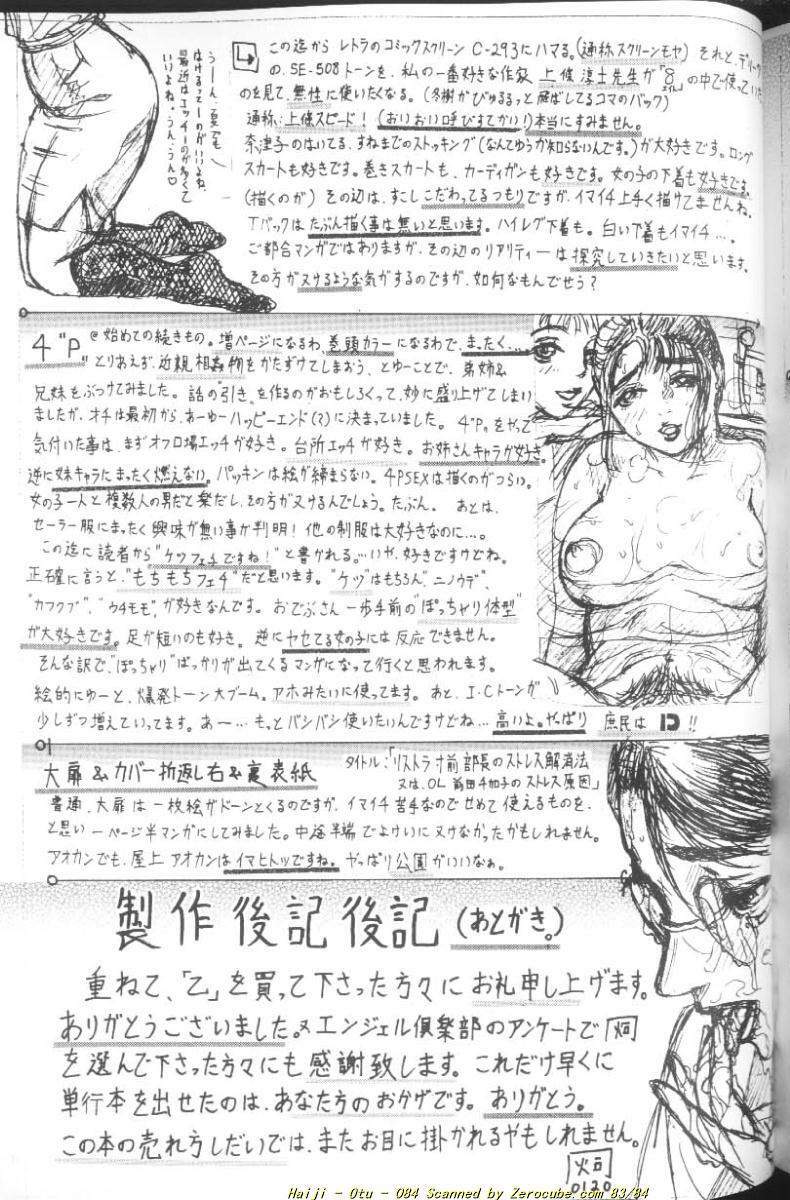 この迄から レトラのコミックスクリーン C-293にハマる。(通称スクリーンモヤ) それと、デリータ
の、SE-508トーンを、私の一番好きな作家 上條淳士先生が「8」の中で使っていた
のを見て、無性に使いたくなる。(冬樹がびゅるるっと飛ばしてるコマのバック)
通称:上條スピード! (おいおい呼びすてかい!)本当にすみません。
奈津子のはいてる、すねまでのストッキング(なんてゆうか知らないんです。)が大好きです。ロング
スカートも好きです。巻きスカートも、カーディガンも好きです。女の子の下着も好きです。
(描くのが) その辺は、すこしこだわってるつもりですが、イマイチ上手く描けてませんね。
Tバックはたぶん描く事は無いと思います。ハイレグ下着も。白い下着もイマイチ…。
ご都合マンガではありますが、その辺のリアリティーは探究していきたいと思います。
その方がヌけるような気がするのですが、如何なもんでせう?
うーん、夏でも
はけるってーのがいいよね。
最近はエッチーのが多くて
いいよね。うん、うん♡
4"P" @始めての続きもの。増ページになるわ、巻頭カラーになるわで、まったく…。
とりあえず、近親相姦物をかたずけてしまおう、とゆーことで、弟姉&
兄妹をぶつけてみました。話の"引き"を作るのがおもしろくって、妙に盛り上げてしまい
ましたが、オチは最初から、あーゆーハッピーエンド(?)に決まっていました。4"P"をやって
気付いた事は、まずオフロ場エッチが好き。台所エッチが好き。お姉さんキャラが好き。
逆に妹キャラにまったく燃えない。パッキンは絵が締まらない。4PSEXは描くのがつらい。
女の子一人と複数人の男だと楽だし、その方がヌけるんでしょう。たぶん。 あとは、
セーラー服にまったく興味が無い事が判明! 他の制服は大好きなのに…。
この迄に読者から"ケツフェチですね!"と書かれる。…いや、好きですけどね。
正確に言うと、"もちもちフェチ"だと思います。"ケツ"はもちろん、"ニノウデ"、
"カフクブ"、"ウチモモ"、が好きなんです。おでぶさん一歩手前の"ぽっちゃり体型"
が大好きです。足が短いのも好き。逆にヤセてる女の子には反応できません。
そんな訳で、"ぽっちゃり"ばっかりが出てくるマンガになって行くと思われます。
絵的にゆーと、爆発トーン大ブーム。アホみたいに使ってます。あと、I・Cトーンが
少しずつ増えていってます。あー…もっとバシバシ使いたいんですけどね…高いよ。やっぱり 庶民は !!
01
大扉&カバー折返し右&裏表紙 タイトル:「リストラ寸前部長のストレス解消法
又は、OL 前田千加子のストレス原因」
普通、大扉は一枚絵がドーンとくるのですが、イマイチ苦手なのでせめて使えるものを、
と思い一ページ半マンガにしてみました。中途半端でよけいにヌけなかったかもしれません。
アオカンでも、屋上アオカンはイマヒトツですね。やっぱり公園がいいなぁ。
製作後記後記(あとがき。)
重ねて、「乙」を買って下さった方々にお礼申し上げます。
ありがとうございました。又エンジェル倶楽部のアンケートで
を選んで下さった方々にも感謝致します。これだけ早くに
単行本を出せたのは、あなた方のおかげです。ありがとう。
この本の売れ方しだいでは、またお目に掛かれるやもしれません。
0120
Haiji - Otu - 084 Scanned by Zerocube.com 83/84